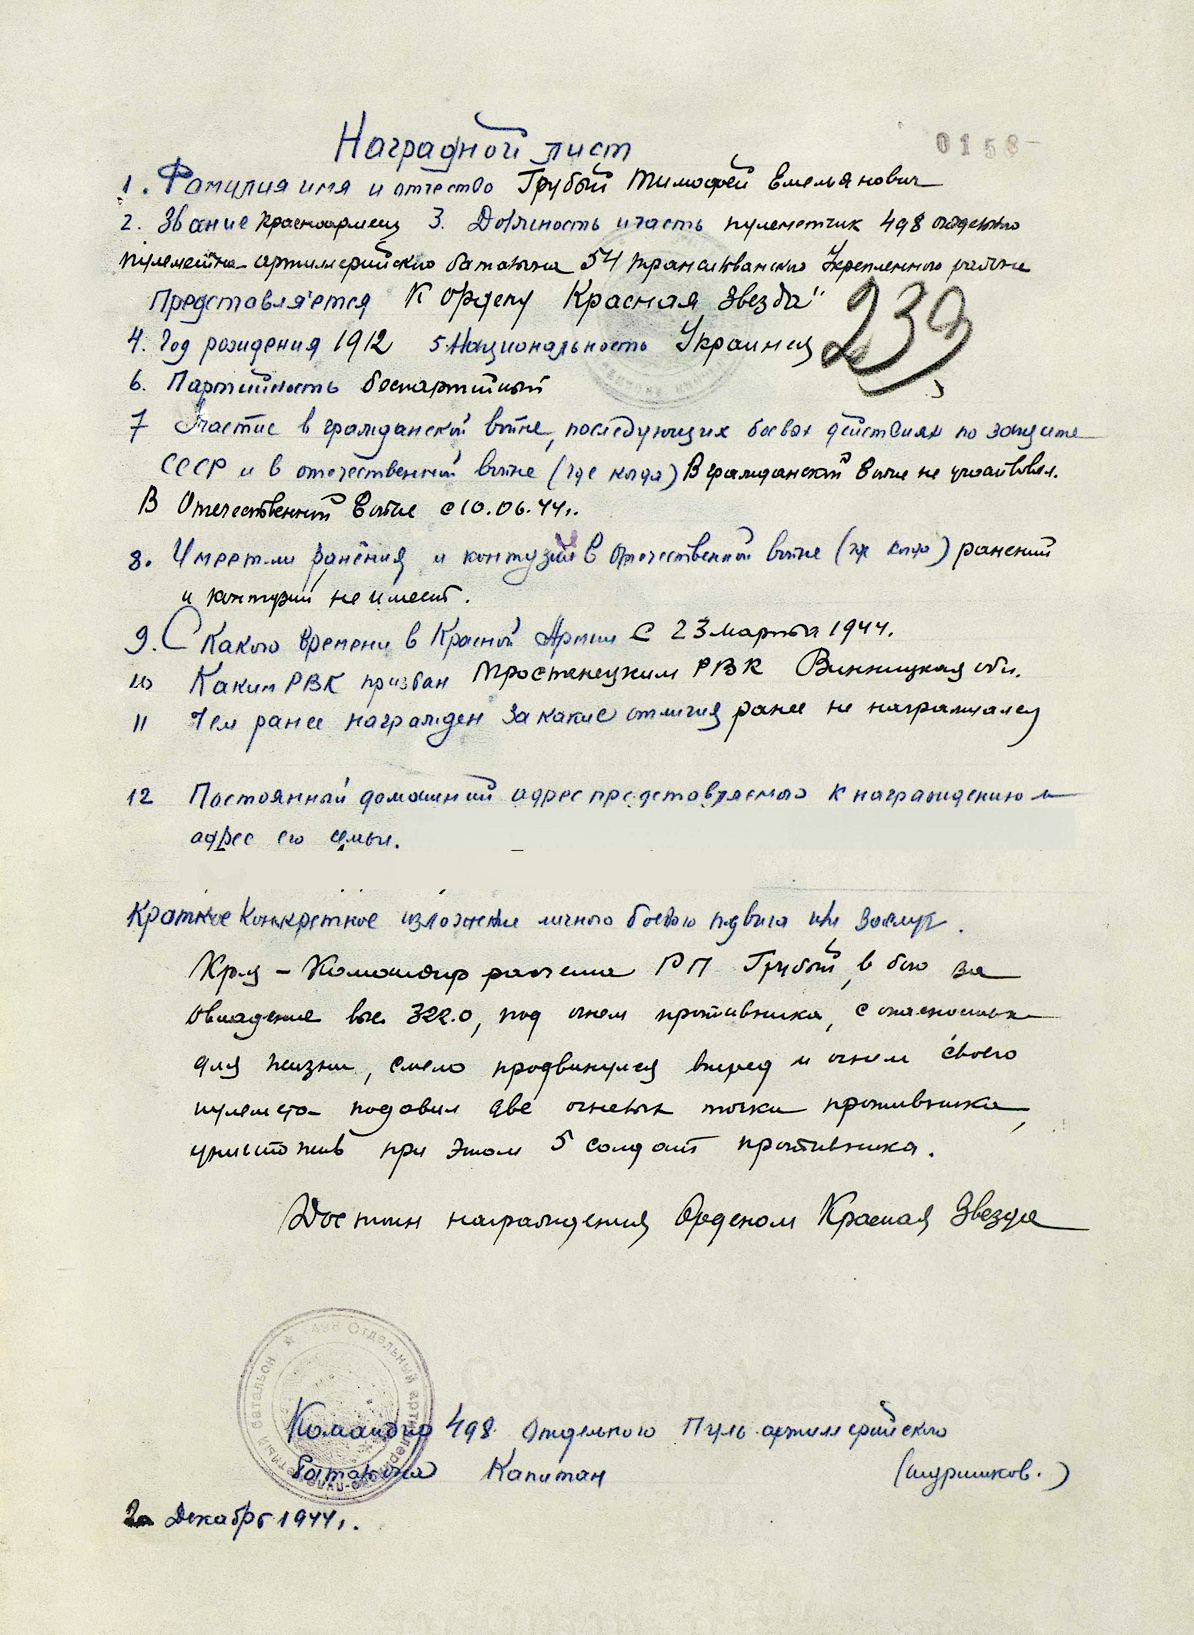 Наградной лист
0158
1. Фамилия имя и отчество Грубый Тимофей Емельянович
2. Звание Красноармеец 3. Должность и часть пулеметчик 498 отдельно
пулеметно артиллерийского батальона 54 Укрепленного района
Представляется К Ордену Красная Звезда"
239
4. Год рождения 1912 5. Национальность Украинец
6. Партийность беспартийный
7 Участие в гражданской войне, последующих боевых действиях по защите
СССР и в отечественной войне (где когда) В гражданской войне не участвовал.
В Отечественной войне с 10.06.44г.
8. Имеет ли ранения и контузии в Отечественной войне (где когда) ранений
и контузий не имеет.
9. С какого времени в Красной Армии С 23 марта 1944.
10 Каким РВК призван Тростенецким РВК Винницкая обл.
11 Чем ранее награжден за какие отличия ранее не награждался
12 Постоянный домашний адрес представляемого к награждению и
адрес его семьи.
Краткое конкретное изложение личного боевого подвига или заслуг.
Кр-ц - Командир расчета РП Грубый, в бою за
овладение выс. 322.0, под огнем противника, с опасностью
для жизни, смело продвинулся вперед и огнем своего
пулемета подавил две огневых точки противника,
уничтожив при этом 5 солдат противника.
Достоин награждения Орденом Красная Звезда
498 Отдельный артиллерийско-пулеметный батальон
Командир 498 Отдельного Пуль. артиллерийского
батальона Капитан
Декабря 1944г.